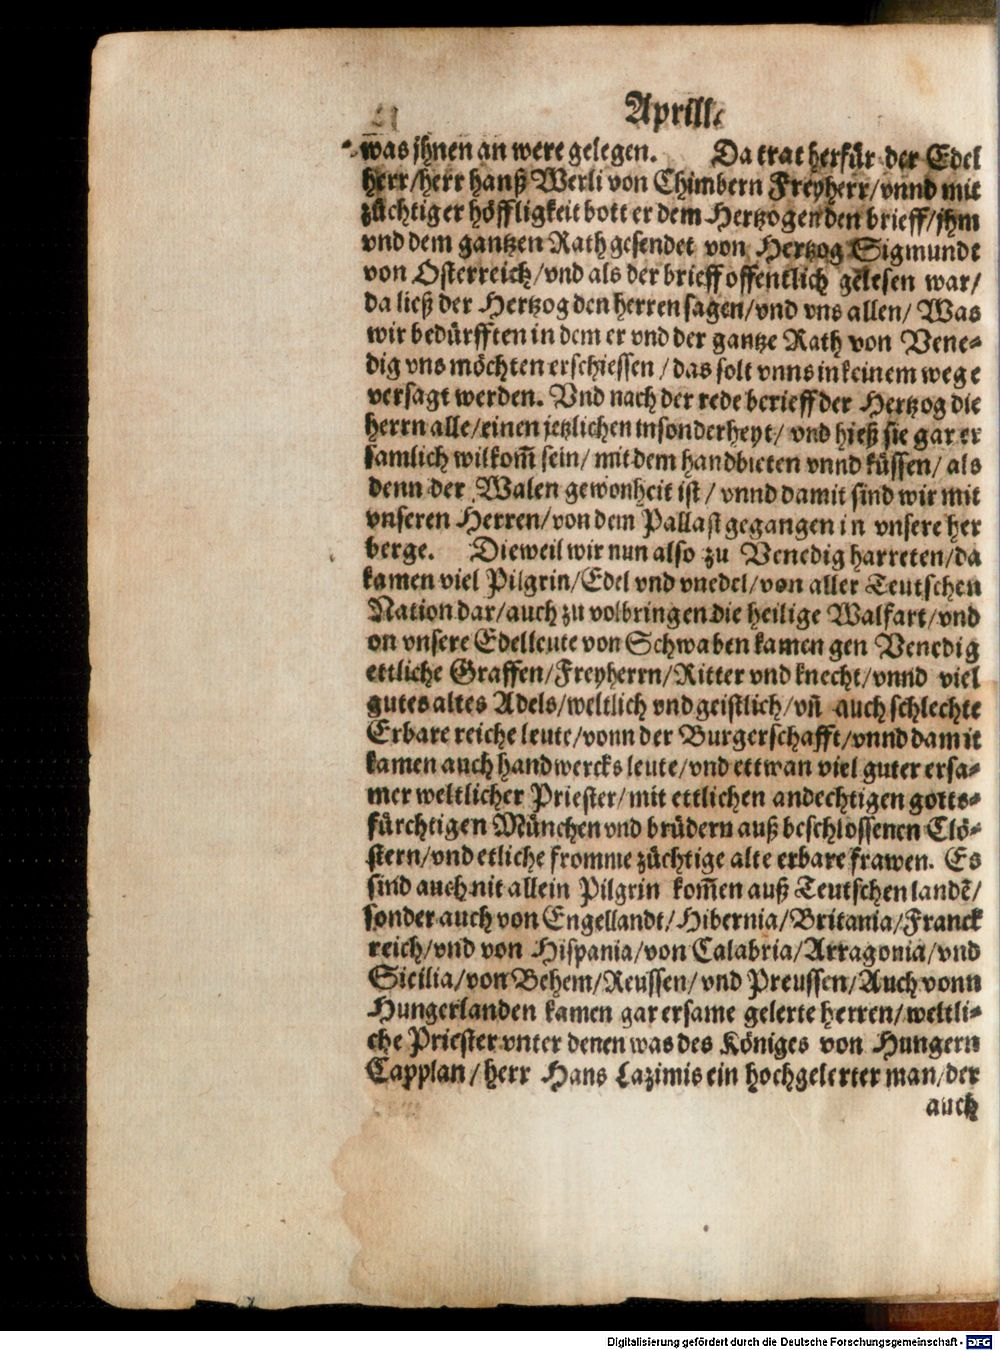 Aprill.
was jhnen an were gelegen. Da trat herfür der Edel
herr/herr hanß Werli von Chimbern Freyherr/vnnd mit
züchtiger höffligkeit bott er dem Hertzogen den brieff/jhm
vnd dem gantzen Rath gesendet von Hertzog Sigmundt
von Osterreich/vnd als der brieff offentlich gelesen war/
da ließ der Hertzog den herren sagen/vnd vns allen/ Was
wir bedürfften in dem er vnd der gantze Rath von Vene⸗
dig vns möchten erschiessen/das solt vnns in keinem wege
versagt werden. Vnd nach der rede berieff der Hertzog die
herrn alle/einen jetzlichen insonderheyt/ vnd hieß sie gar er
samlich wilkom̃ sein/ mit dem handbieten vnnd küssen/ als
denn der Walen gewonheit ist/ vnnd damit sind wir mit
vnseren Herren/von dem Pallast gegangen in vnsere her
berge. Dieweil wir nun also zu Venedig harreten/da
kamen viel Pilgrin/Edel vnd vnedel/von aller Teutschen
Nation dar/auch zu volbringen die heilige Walfart/vnd
on vnsere Edelleute von Schwaben kamen gen Venedig
ettliche Graffen/Freyherrn/Ritter vnd knecht/vnnd viel
gutes altes Adels/weltlich vnd geistlich/vñ auch schlechte
Erbare reiche leute/vonn der Burgerschafft/vnnd damit
kamen auch handwercks leute/vnd ettwan viel guter ersa⸗
mer weltlicher Priester/mit ettlichen andechtigen gotts⸗
fürchtigen München vnd brüdern auß beschlossenen Clö⸗
stern/vnd etliche fromme züchtige alte erbare frawen. Es
sind auch nit allein Pilgrin kom̃en auß Teutschen landẽ/
sonder auch von Engellandt/Hibernia/Britania/Franck
reich/vnd von Hispania/von Calabria/Arragonia/vnd
Sicilia/von Behem/Reussen/vnd Preussen/Auch vonn
Hungerlanden kamen gar ersame gelerte herren/weltli⸗
che Priester vnter denen was des Königes von Hungern
Capplan/herr Hans Lazimis ein hochgelerter man/der
auch
Digitalisierung gefördert durch die Deutsche Forschungsgemeinschaft - DFG